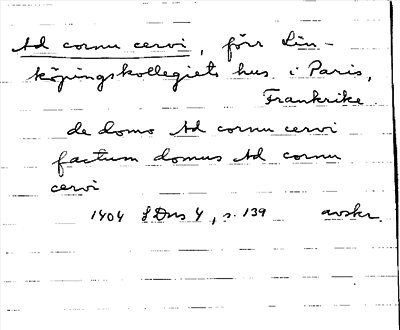 Ad cornu cervi, förr Lin-
köpingskollegiets hus i Paris,
Frankrike.
de domo Ad cornu cervi
factum domus Ad cornu
cervi
1404 SDns 4, s. 139 avskr.